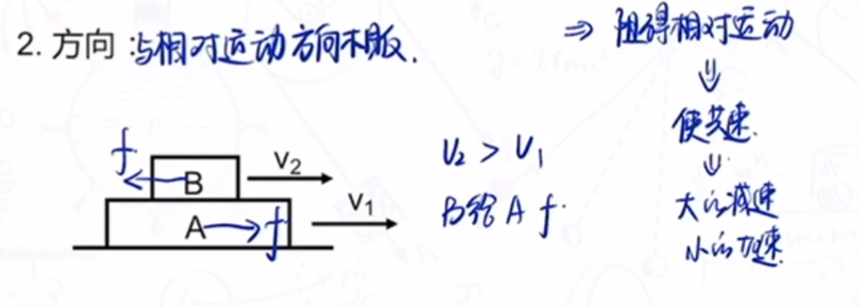 2. 方向:与相对运动方向相反.
⇒ 阻碍相对运动
⇓
使共速.
⇓
大的减速
小的加速.
f
B
v₂
A
f
v₁
v₂ > v₁
B给A f.